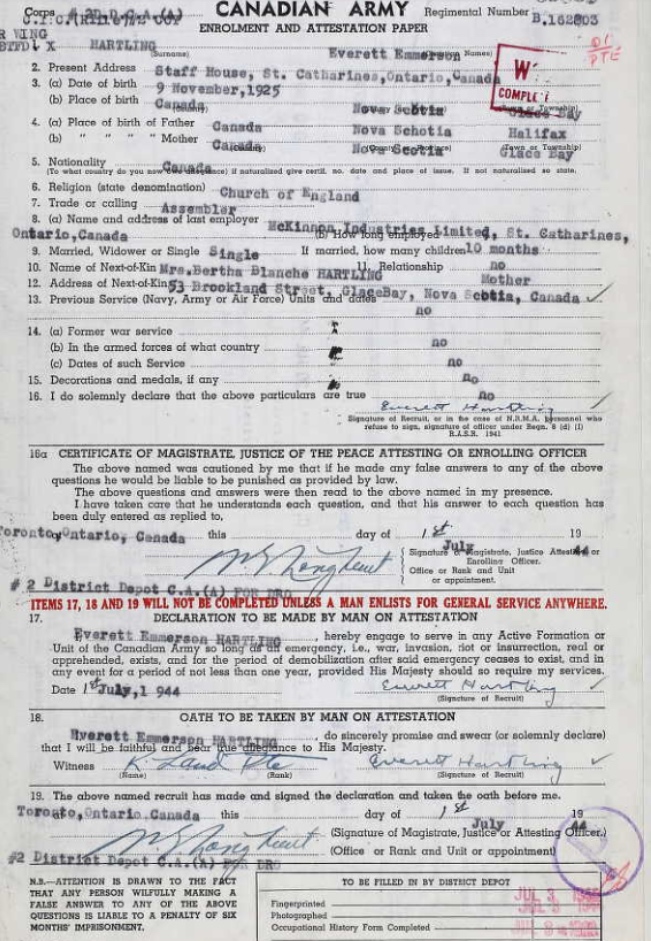 Corps # 2D.D.C.A.(A) CANADIAN ARMY Regimental Number B.162803
ENROLMENT AND ATTESTATION PAPER
R WING
BTFD L X HARTLING Everett Emmerson
(Surname) Names)
01
PTE
W
COMPLE
2. Present Address Staff House, St. Catharines,Ontario,Canada
3. (a) Date of birth 9 November,1925
(b) Place of birth Canada Nova Scotia Glace Bay
4. (a) Place of birth of Father Canada Nova Schotia Halifax
(b) " " " " Mother Canada Nova Scotia Glace Bay
5. Nationality Canada
(To what country do you now owe allegiance) if naturalized give certif. no. date and place of issue. If not naturalized so state.
6. Religion (state denomination) Church of England
7. Trade or calling Assembler
8. (a) Name and address of last employer McKinnon Industries Limited, St. Catharines,
Ontario,Canada (b) How long employed
9. Married, Widower or Single Single If married, how many children 10 months
10. Name of Next-of-Kin Mrs.Bertha Blanche HARTLING 11. Relationship no
12. Address of Next-of-Kin 53 Brookland Street, GlaceBay, Nova Scotia, Canada Mother
13. Previous Service (Navy, Army or Air Force) Units and dates
no
14. (a) Former war service
(b) In the armed forces of what country no
(c) Dates of such Service no
15. Decorations and medals, if any no
16. I do solemnly declare that the above particulars are true no
Everett Hartling
Signature of Recruit, or in the case of N.R.M.A. personnel who
refuse to sign, signature of officer under Regn. 6 (d) (1)
R.A.S.R. 1941
16a CERTIFICATE OF MAGISTRATE, JUSTICE OF THE PEACE ATTESTING OR ENROLLING OFFICER
The above named was cautioned by me that if he made any false answers to any of the above
questions he would be liable to be punished as provided by law.
The above questions and answers were then read to the above named in my presence.
I have taken care that he understands each question, and that his answer to each question has
been duly entered as replied to,
Toronto,Ontario, Canada this day of 1st July 19 44
Signature of Magistrate, Justice Attesting or
Enrolling Officer.
Office or Rank and Unit
or appointment.
# 2 District Depot C.A.(A) FOR DRO
ITEMS 17, 18 AND 19 WILL NOT BE COMPLETED UNLESS A MAN ENLISTS FOR GENERAL SERVICE ANYWHERE.
17. DECLARATION TO BE MADE BY MAN ON ATTESTATION
Everett Emmerson HARTLING , hereby engage to serve in any Active Formation or
Unit of the Canadian Army so long as an emergency, i.e., war, invasion, riot or insurrection, real or
apprehended, exists, and for the period of demobilization after said emergency ceases to exist, and in
any event for a period of not less than one year, provided His Majesty should so require my services.
Date 1st July,1 944 Everett Hartling
(Signature of Recruit)
18. OATH TO BE TAKEN BY MAN ON ATTESTATION
Everett Emmerson HARTLING , do sincerely promise and swear (or solemnly declare)
that I will be faithful and bear true allegiance to His Majesty.
Witness K. Laud Pte Everett Hartling
(Name) (Rank) (Signature of Recruit)
19. The above named recruit has made and signed the declaration and taken the oath before me.
Toronto,Ontario.Canada this day of 1st July 19 44
(Signature of Magistrate, Justice or Attesting Officer.)
(Office or Rank and Unit or appointment)
#2 District Depot C.A.(A) FOR DRO
N.B.—ATTENTION IS DRAWN TO THE FACT
THAT ANY PERSON WILFULLY MAKING A
FALSE ANSWER TO ANY OF THE ABOVE
QUESTIONS IS LIABLE TO A PENALTY OF SIX
MONTHS' IMPRISONMENT.
TO BE FILLED IN BY DISTRICT DEPOT
Fingerprinted JUL 3
Photographed JUL 3
Occupational History Form Completed JUL